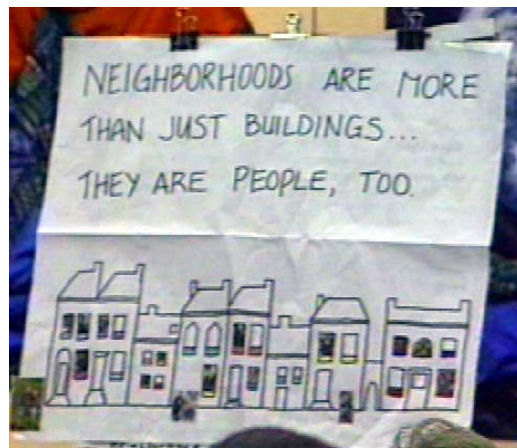 NEIGHBORHOODS ARE MORE
THAN JUST BUILDINGS...
THEY ARE PEOPLE, TOO.